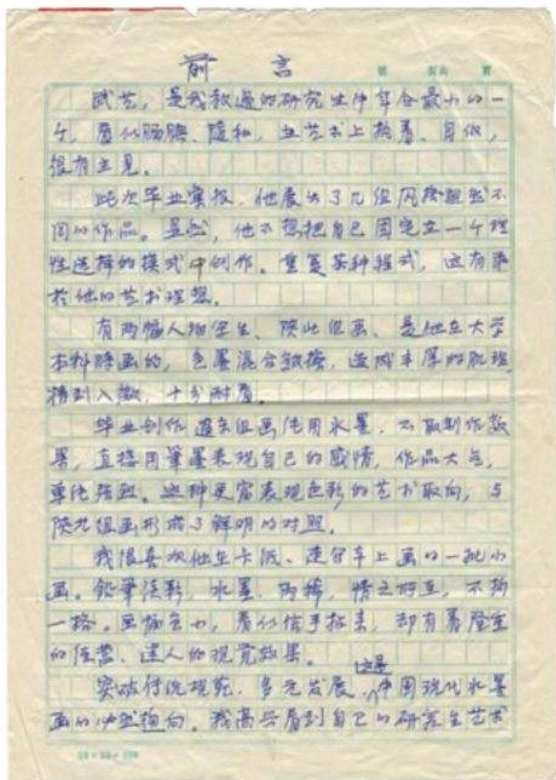 前言
武艺，是我教过的研究生中年令最小的一
个，看似腼腆、随和，在艺术上执着、自信，
很有主见。
此次毕业汇报，他展出了几组风格迥然不
同的作品。显然，他不想把自己固定在一个理
性选择的模式中创作。重复某种程式，这有乖
于他的艺术理想。
有两幅人物写生、陕北组画、是他在大学
本科时画的，色墨混合皴擦，造成丰厚的肌理，
精到入微，十分耐看。
毕业创作辽东组画使用水墨，不取制作效
果，直接用笔墨表现自己的感情，作品大气，
单纯强烈。这种更富表现色彩的艺术取向，与
陕北组画形成了鲜明的对照。
我很喜欢他在卡纸、速写本上画的一批小
画。铅笔淡彩，水墨、丙稀，情之所至，不拘
一格。画幅虽小，看似信手拈来，却有着隆重
的经营、逮人的视觉效果。
突破传统规范，多元发展，这是中国现代水墨
画的必然趋向。我高兴看到自己的研究生艺术